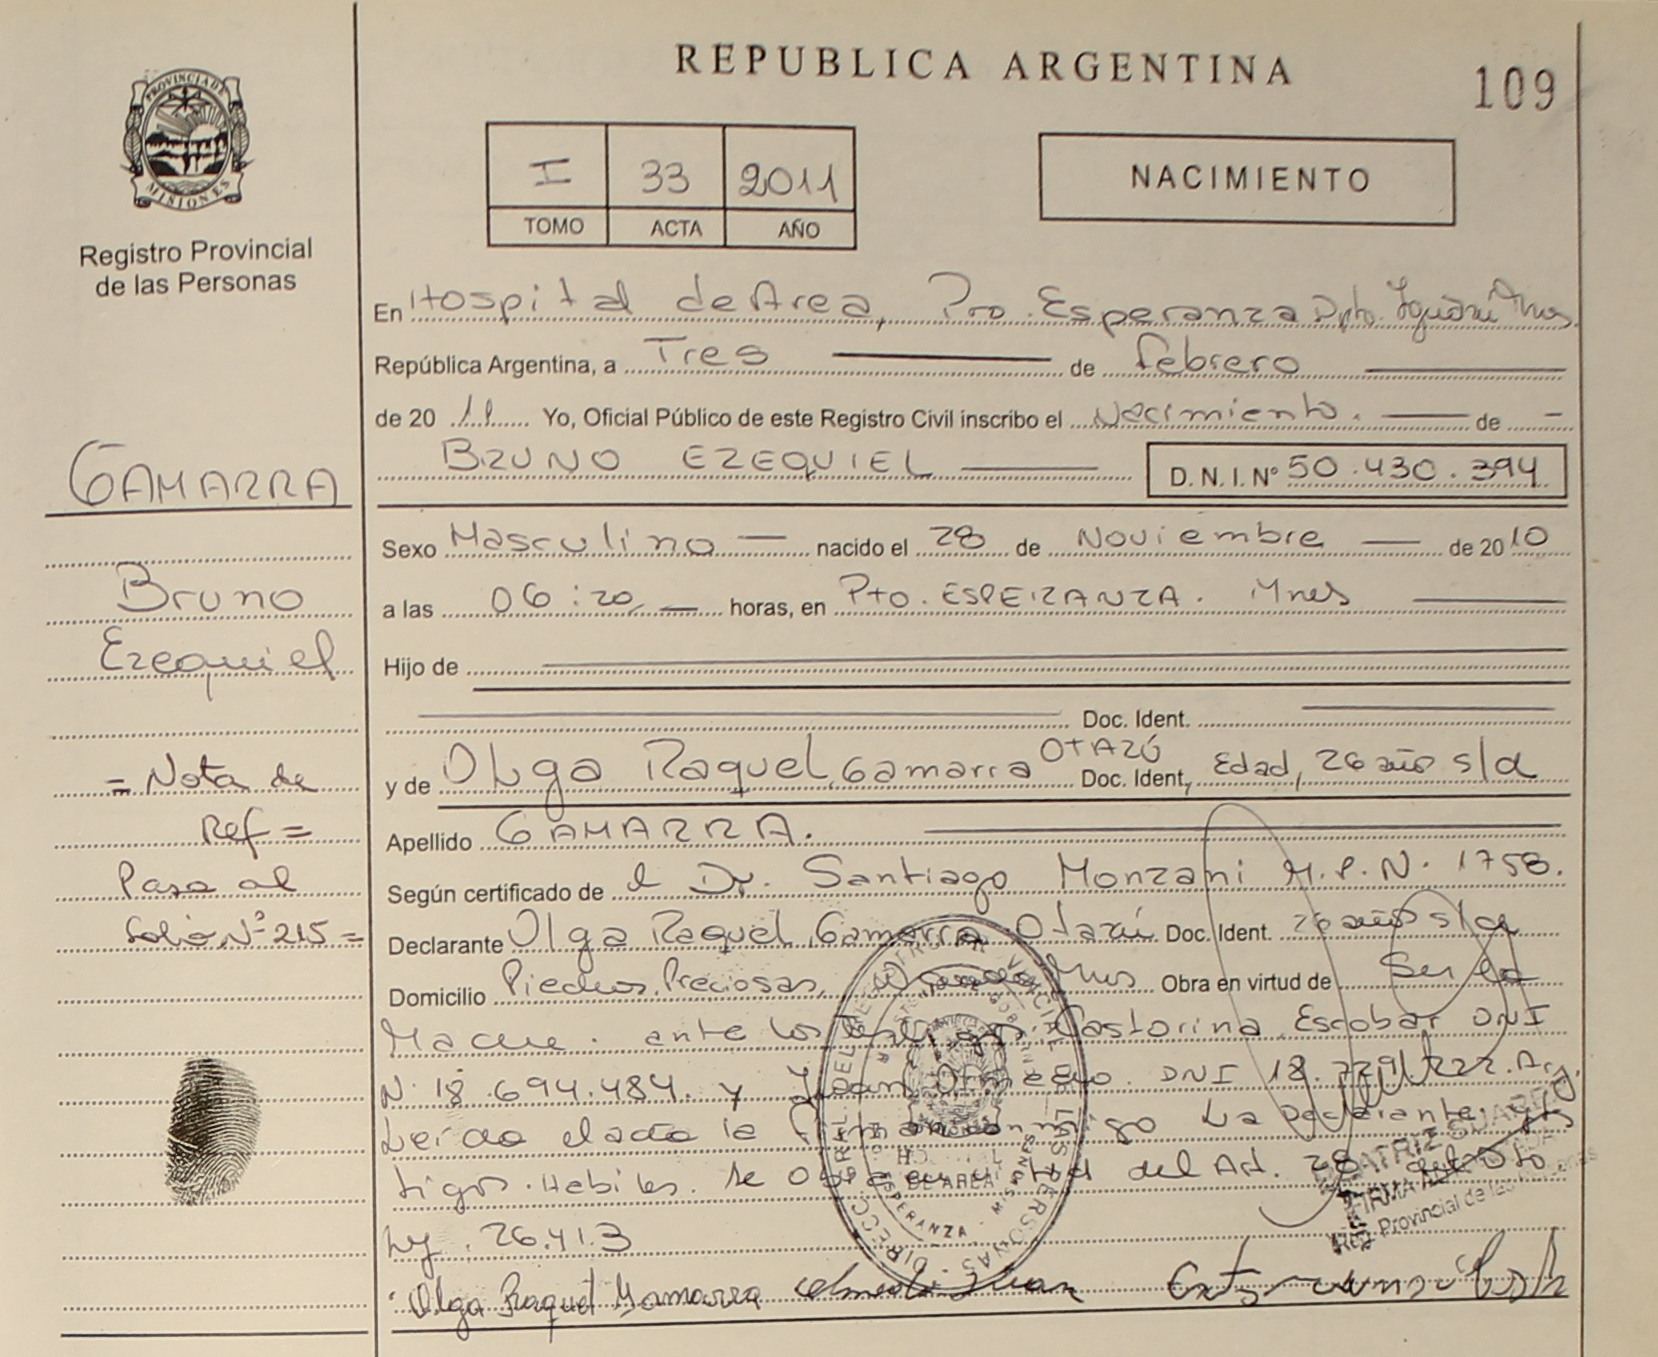 REPUBLICA ARGENTINA
109
PROVINCIA DE MISIONES
Registro Provincial
de las Personas
I 33 2011
TOMO ACTA AÑO
NACIMIENTO
En Hospital de Area, Pto. Esperanza Dpto. Iguazú Mnes.
República Argentina, a Tres de febrero
de 2011 Yo, Oficial Público de este Registro Civil inscribo el Nacimiento. de
BRUNO EZEQUIEL D.N.I. N° 50.430.394
GAMARRA
Bruno
Ezequiel
= Nota de
Ref =
Pasa al
folio N° 215 =
Sexo Masculino nacido el 28 de Noviembre de 2010
a las 06:20 horas, en Pto. ESPERANZA. Mnes
Hijo de
Doc. Ident.
y de Olga Raquel Gamarra OTAZÚ Doc. Ident, Edad, 26 año s/d
Apellido GAMARRA.
Según certificado de el Dr. Santiago Monzani M.P.N. 1758.
Declarante Olga Raquel Gamarra Otazú Doc. Ident. 26 año s/d
Domicilio Piedras Preciosas, Mnes Obra en virtud de Ser la
Madre. ante los testigos. Castorina Escobar DNI
N° 18.694.484. y Juan DNI 18. Arg.
Leída el acta la firman conmigo La Declarante y tes
tigos. Habiles. Se obra en virtud del Art. 28 del Dto
Ley. 26.413
Olga Raquel Gamarra
HOSPITAL
DE AREA
ESPERANZA - MISIONES
BEATRIZ SUAREZ
Reg. Provincial de las Personas